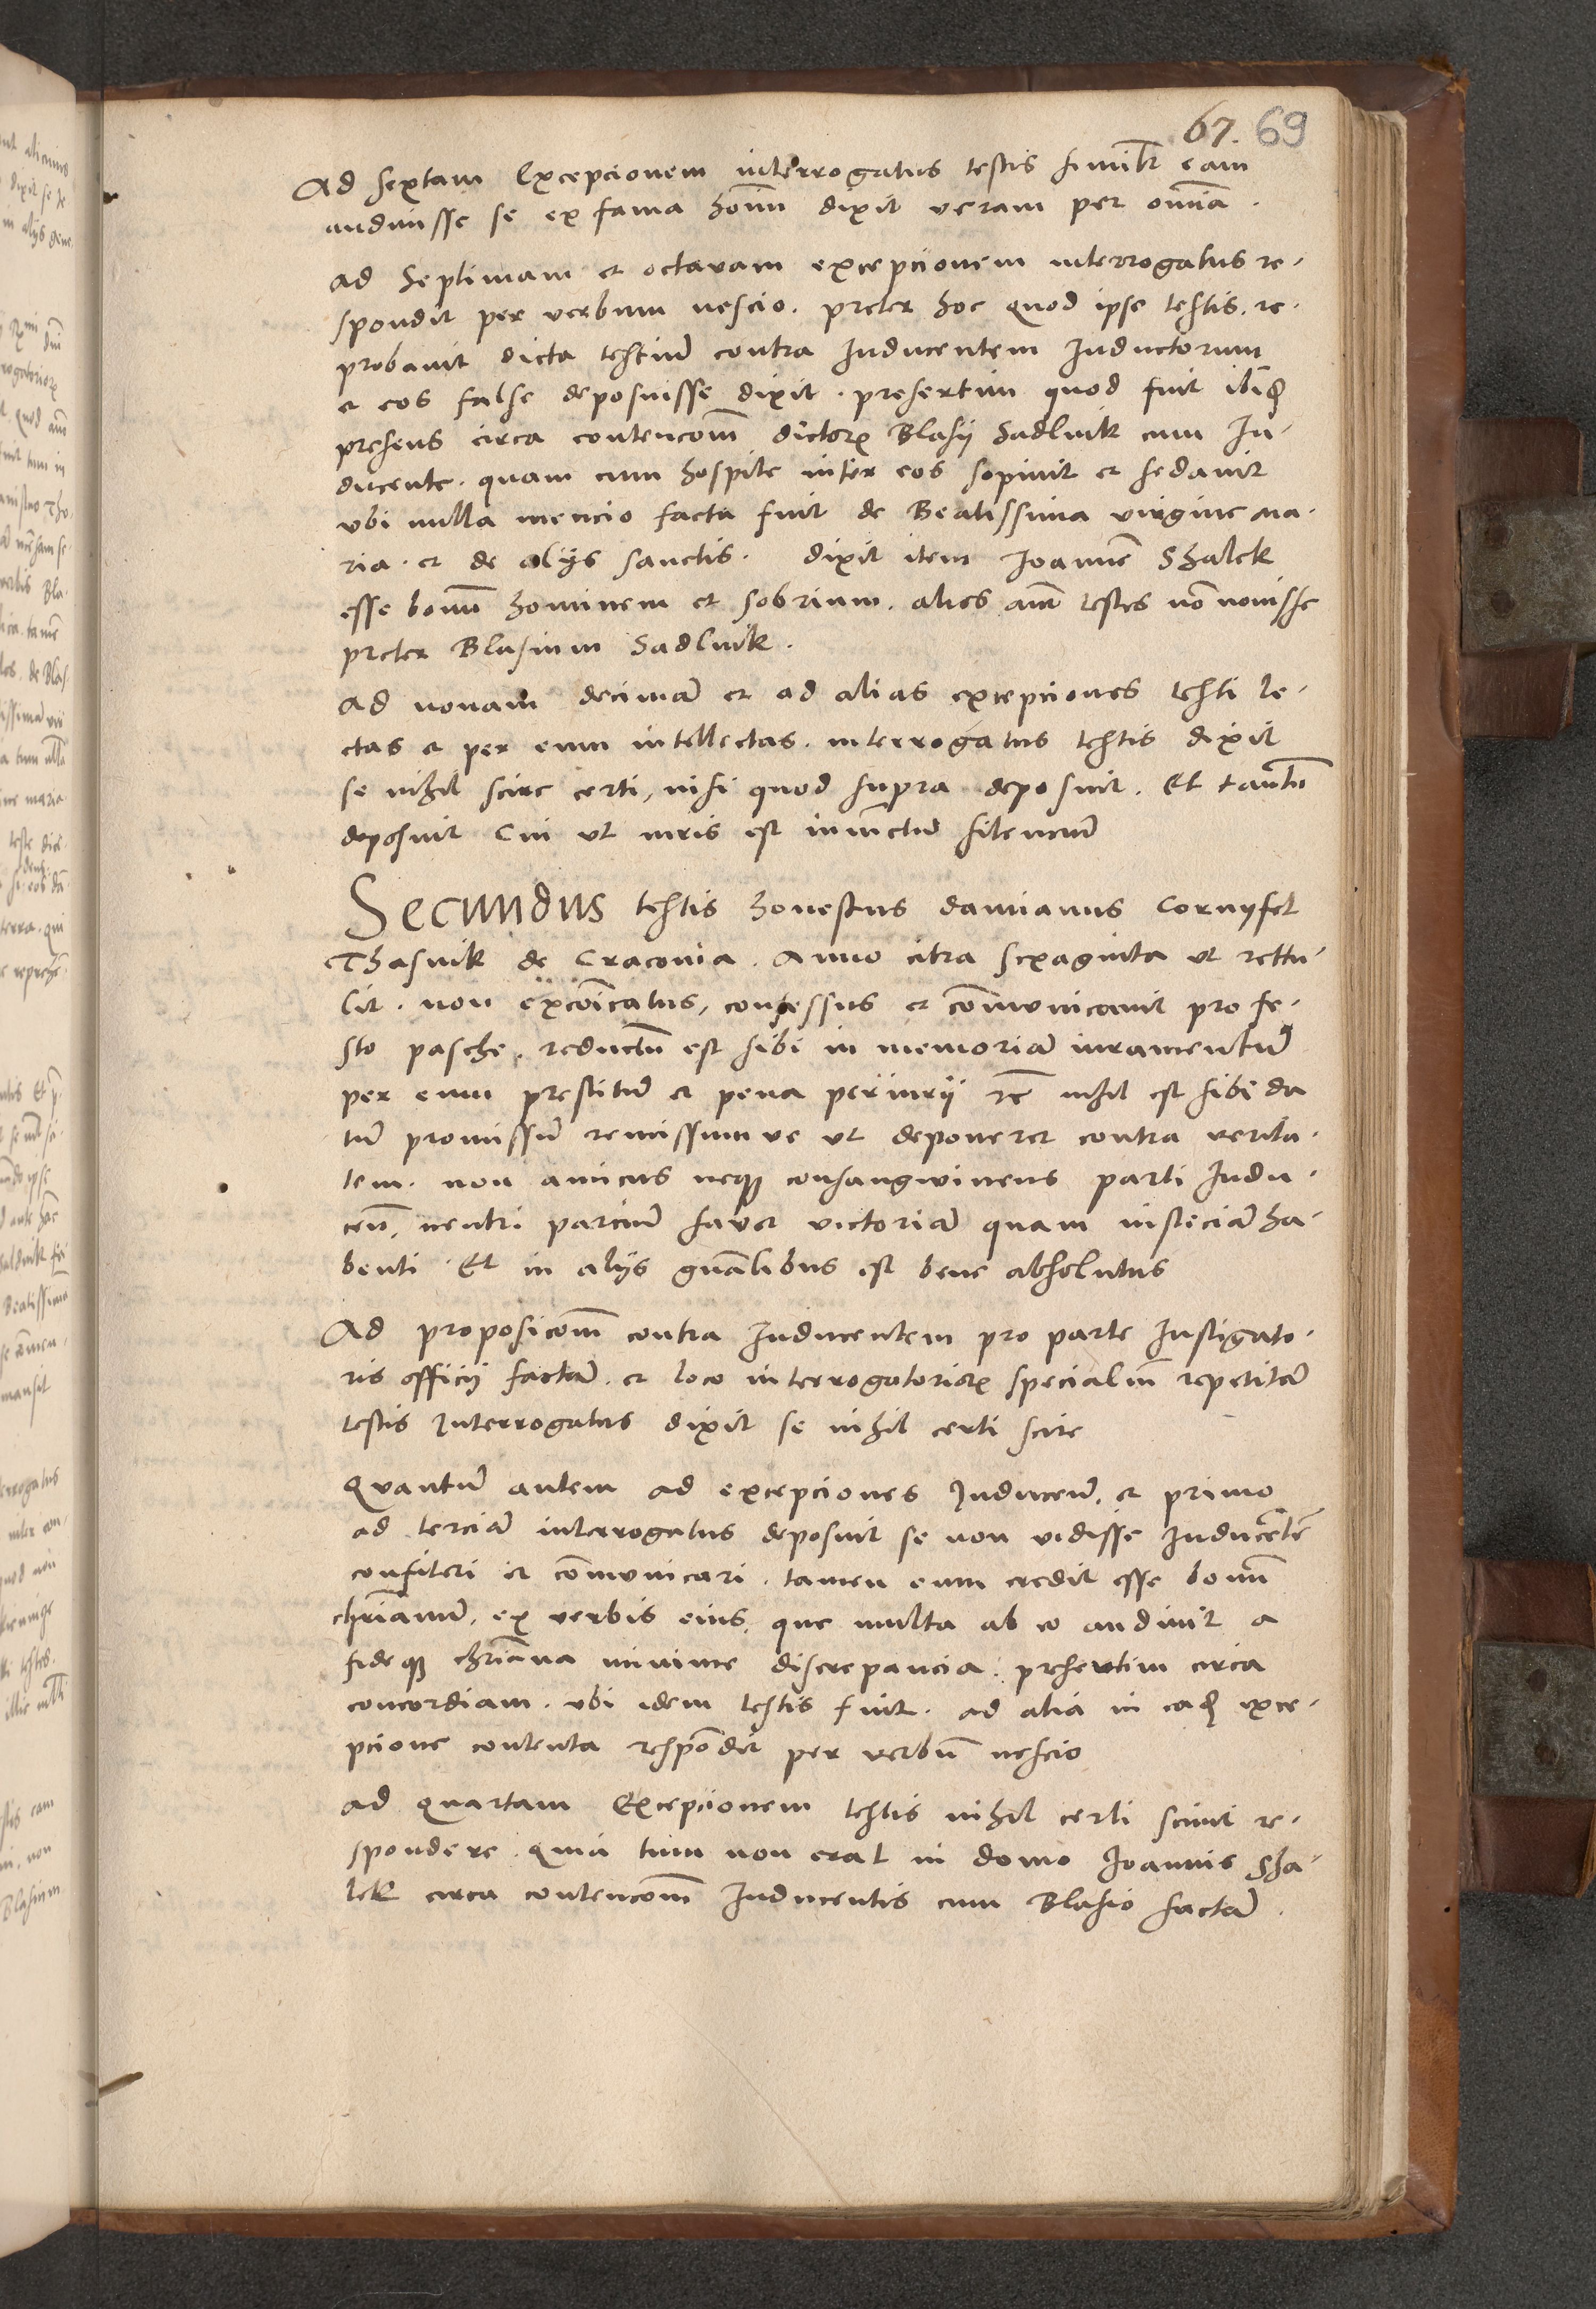 67. 69
Ad sextam Excepcionem interrogatus testis similr eam
audiuisse se ex fama homn dixit veram per omnia .
ad septimam et octavam excepcionem interrogatus re-
spondit per verbum nescio . preter hoc quod ipse testis . re-
probauit dicta testiu contra Inducentem Inductorum
et eos false deposuisse dixit . presertim quod fuit ibiq
presens circa contencom dictorz Blasij Sadlnik cum In-
ducente . quam cum hospite inter eos sopiuit et sedauit
vbi nulla mencio facta fuit de Beatissima virgine ma-
ria . et de alijs sanctis . dixit item Joanne Shalek
esse bonu hominem et sobrium . alios aut testes no nouisse
preter Blasium Sadlnik .
ad nonam decima et ad alias excepciones testi le-
ctas et per eum intellectas . interrogatus testis dixit
se nihil scire certi, nisi quod supra deposuit . Et tantu
deposuit Cui vt iuris est iniunctu silenciu
Secundus testis honestus damianus Cornyfel
Thasnik de Craconia . Anno citra sexaginta vt rettu-
lit . non excoicatus, confessus et comunicauit pro fe-
sto pasche . reductu est sibi in memoria iuramentu
per eum prestitu et pena periurij rc nihil est sibi da
tu promissu remissumve vt deponeret contra verita-
tem . non amicus neq consangwineus parti Indu-
cen, neutri parciu favet victoria quam iusticia ha-
benti Et in alijs gnalibus est bene absolutus
Ad proposicom contra Inducentem pro parte Instigato-
ris officij facta . et loco interrogatoriorz specialm repetita
testis Interrogatus dixit se nihil certi scire
Quantu autem ad excepciones Inducen, et primo
ad tercia interrogatus deposuit se non vidisse Inducete
confiteri et comunicari . tamen eum credit esse bonu
chrianu . ex verbis eius, que multa ab eo audiuit a
fide q chriana minime discrepancia . presertim circa
concordiam . vbi idem testis fuit . ad alia in eadq exce-
pcione contenta respodit per verbu nescio
ad quartam Excepcionem testis nihil certi sciuit re-
spondere . quia tum non erat in domo Joannis Sha-
lek circa contencom Inducentis cum Blasio facta .